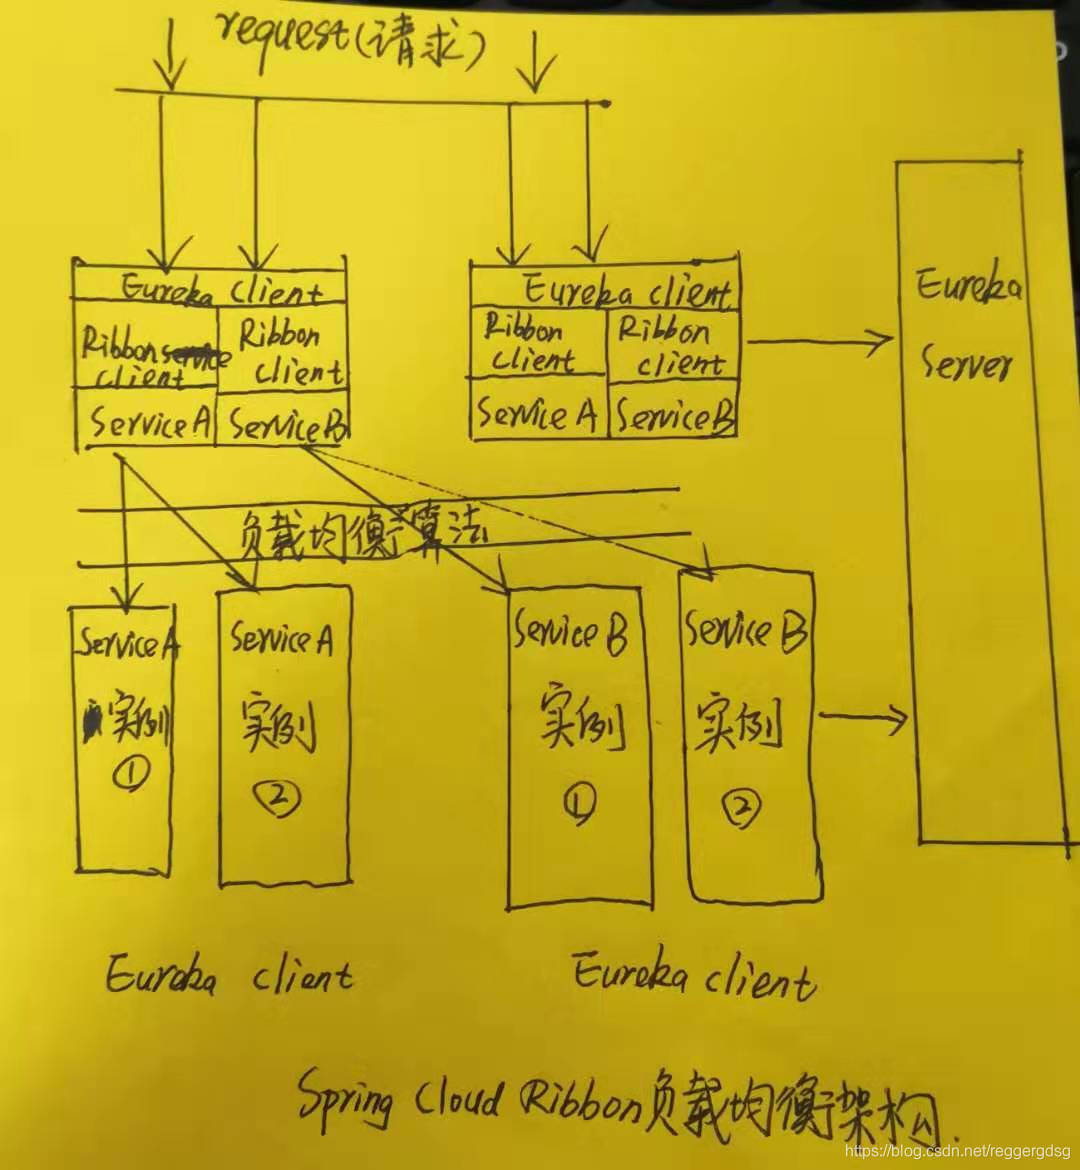 request(请求)
Eureka client
Ribbon
client
Ribbon
client
Service A
Service B
Eureka client
Ribbon
client
Ribbon
client
Service A
Service B
Eureka
Server
负载均衡算法
Service A
实例
①
Service A
实例
②
Service B
实例
①
Service B
实例
②
Eureka client
Eureka client
Spring Cloud Ribbon负载均衡架构.
https://blog.csdn.net/reggergdsg